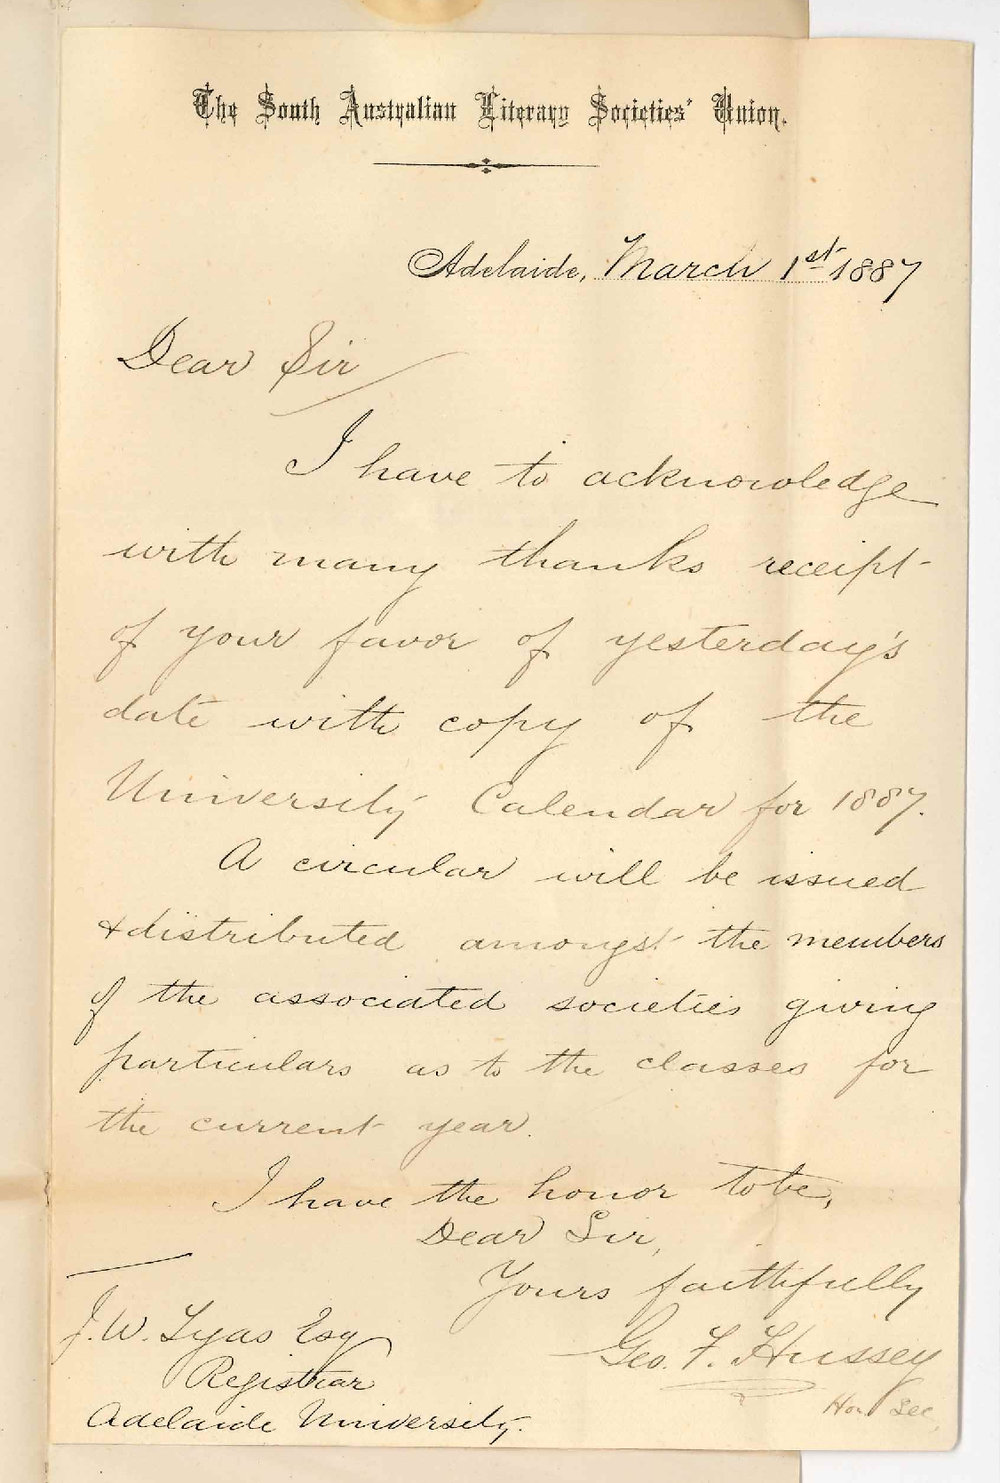 The South Australian Literary Societies' Union.
Adelaide, March 1st 1887
Dear Sir
I have to acknowledge
with many thanks receipt
of your favor of yesterday's
date with copy of the
University Calendar for 1887.
A circular will be issued
& distributed amongst the members
of the associated societies giving
particulars as to the classes for
the current year.
I have the honor to be,
Dear Sir,
Yours faithfully
Geo. F. Hussey
Hon Sec.
J. W. Tyas Esq
Registrar
Adelaide University.